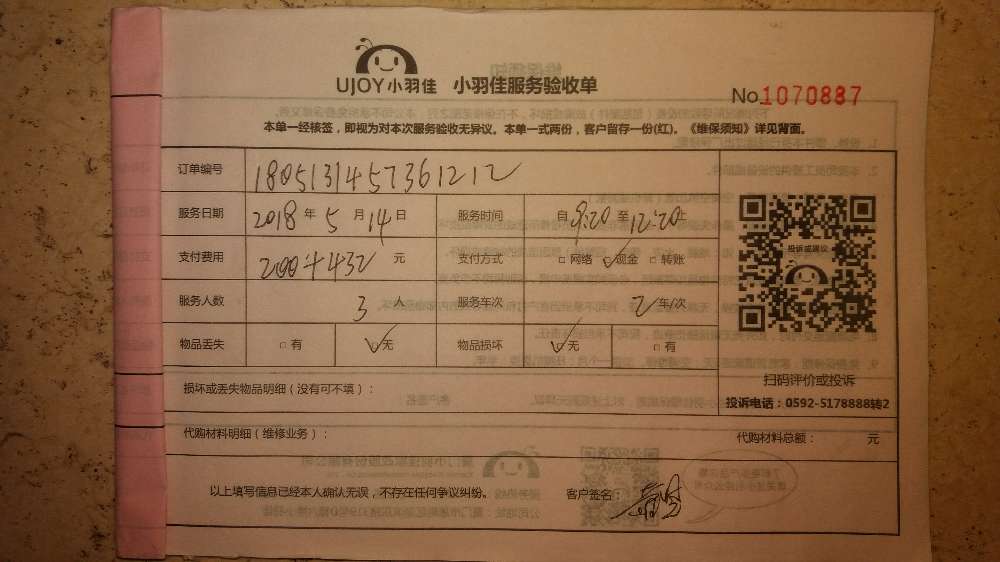 UJOY小羽佳 小羽佳服务验收单
No.1070887
本单一经核签，即视为对本次服务验收无异议。本单一式两份，客户留存一份(红)。《维保须知》详见背面。
订单编号 180513145736121 2
服务日期 2018 年 5 月 14 日 服务时间 自 9:20 至 12:20 止
支付费用 200+432 元 支付方式 □ 网络 ☑ 现金 □ 转账
服务人数 3 人 服务车次 2 车/次
物品丢失 □ 有 ☑ 无 物品损坏 ☑ 无 □ 有
投诉或建议
扫码评价或投诉
投诉电话：0592-5178888转2
损坏或丢失物品明细（没有可不填）：
代购材料明细（维修业务）： 代购材料总额： 元
以上填写信息已经本人确认无误，不存在任何争议纠纷。 客户签名：